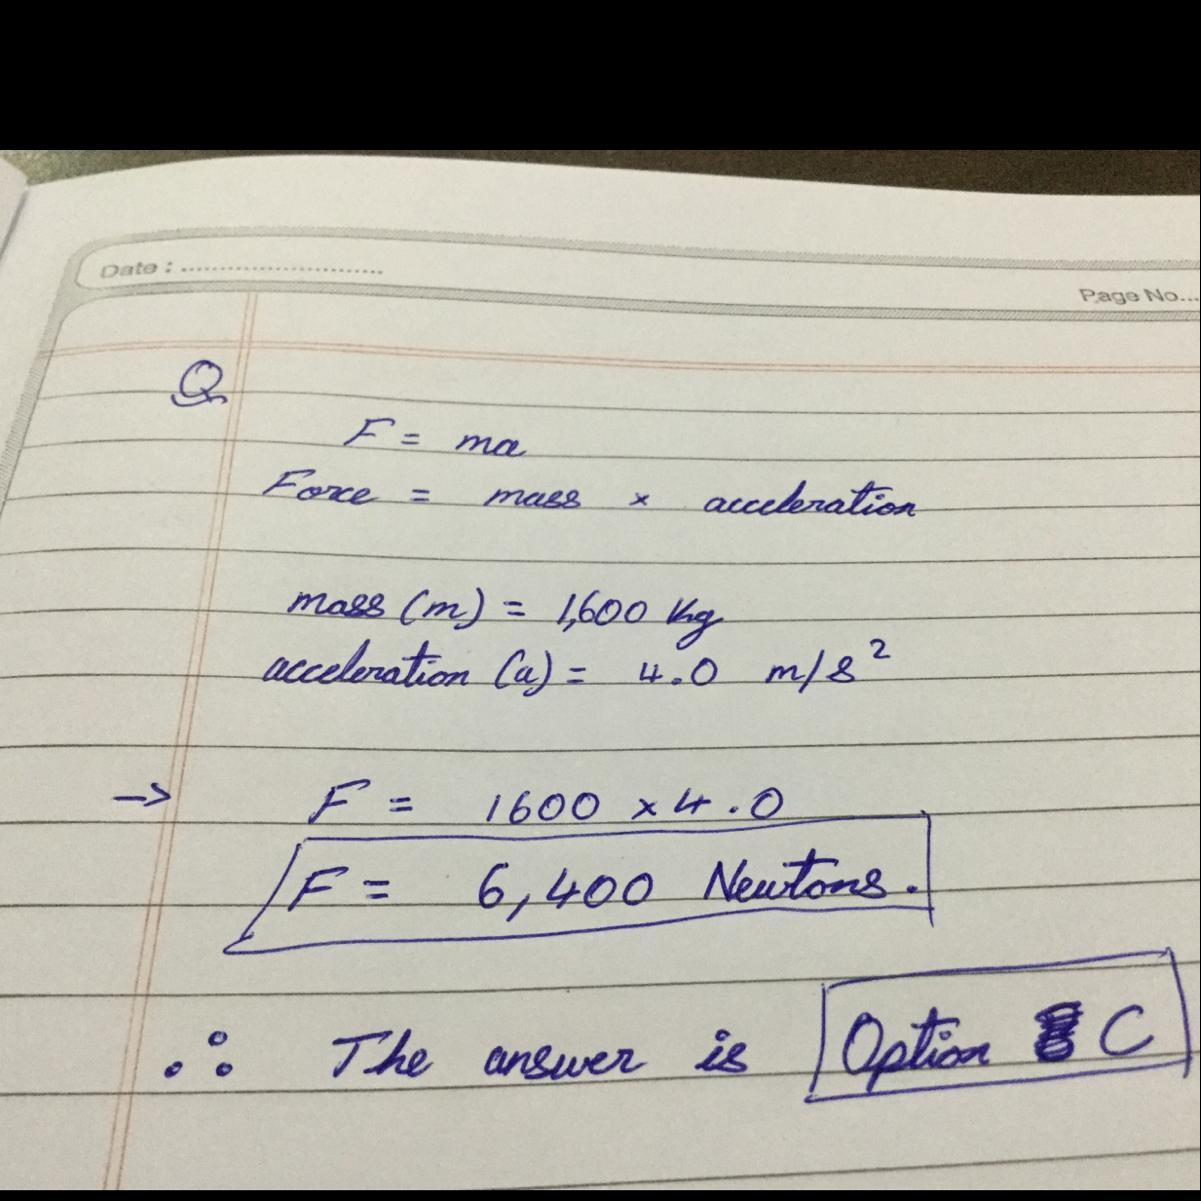 Date : ........................
Page No...
Q
F = ma
Force = mass × acceleration
mass (m) = 1,600 Kg
acceleration (a) = 4.0 m/s²
→ F = 1600 × 4.0
F = 6,400 Newtons.
∴ The answer is Option C